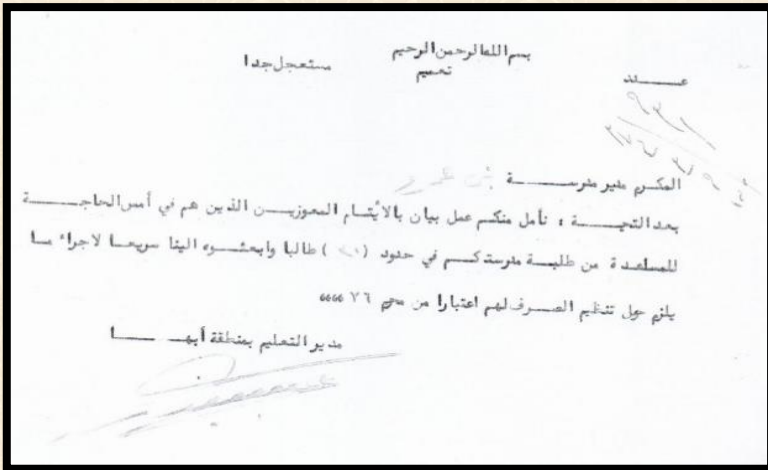 بسم الله الرحمن الرحيم
تعميم
مستعجل جدا
عـــدد
المكرم مدير مدرســـــة بني عمرو
بعد التحيـــة ، نأمل منكم عمل بيان بالأيتـــام المعوزيـــن الذين هم في أمس الحاجـــــة
للمساعدة من طلبـــة مدرستكـــم في حدود ( ) طالبا وابعثـــوه الينا سريعـــا لاجراء مــا
يلزم حول تنظيم الصـــرف لهم اعتبارا من محرم ٧٦
مدير التعليم بمنطقة أبهـــــا